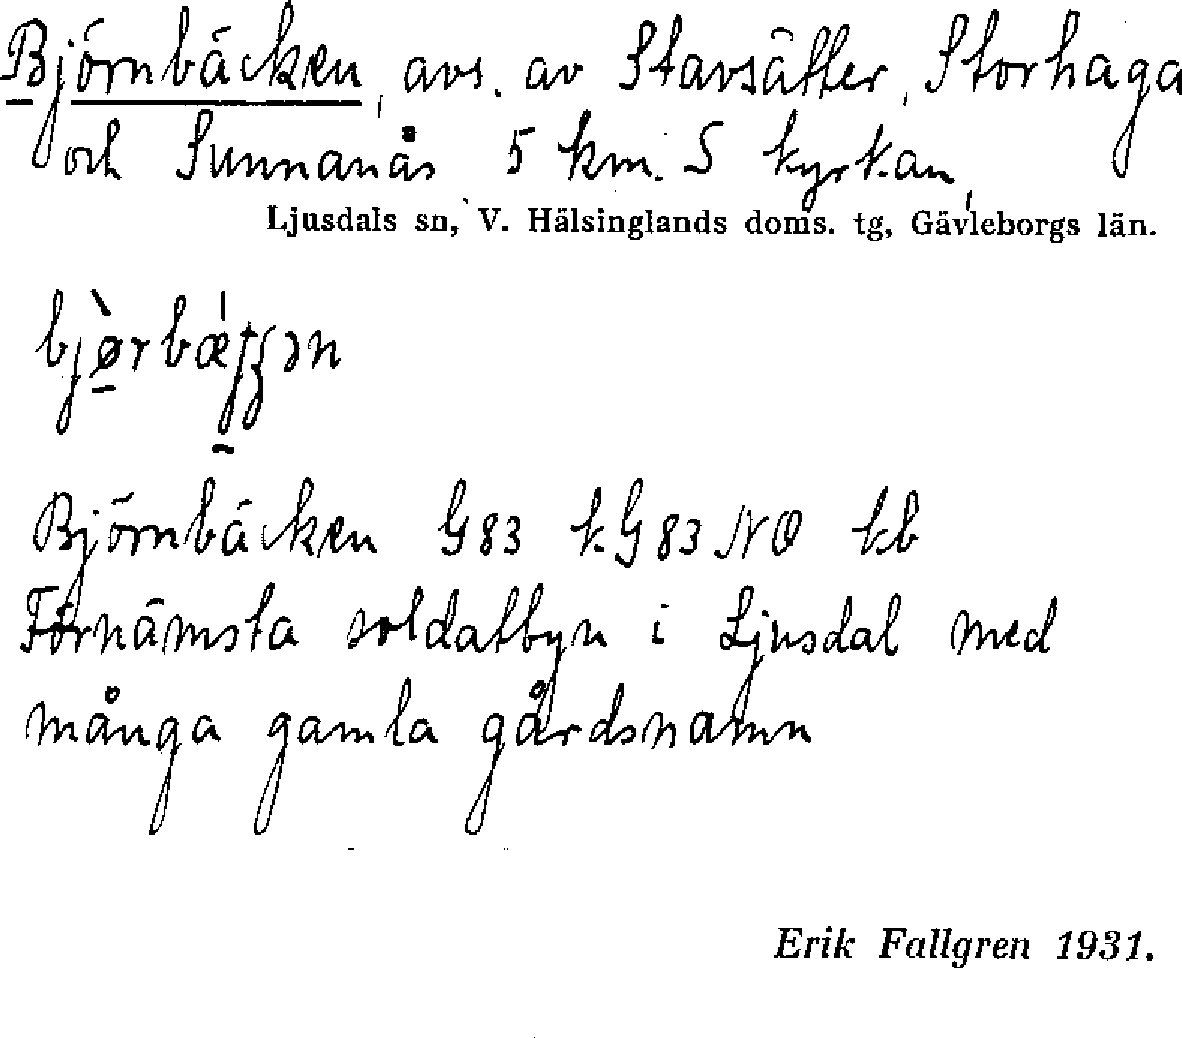 Björnbäcken, avs. av Stavsätter, Storhaga
och Sunnanås 5 km. S kyrkan,
Ljusdals sn, V. Hälsinglands doms. tg, Gävleborgs län.
Björnbäcken G83 k.G83 NO kb
Förnämsta soldatbyn i Ljusdal med
många gamla gårdsnamn
Erik Fallgren 1931.